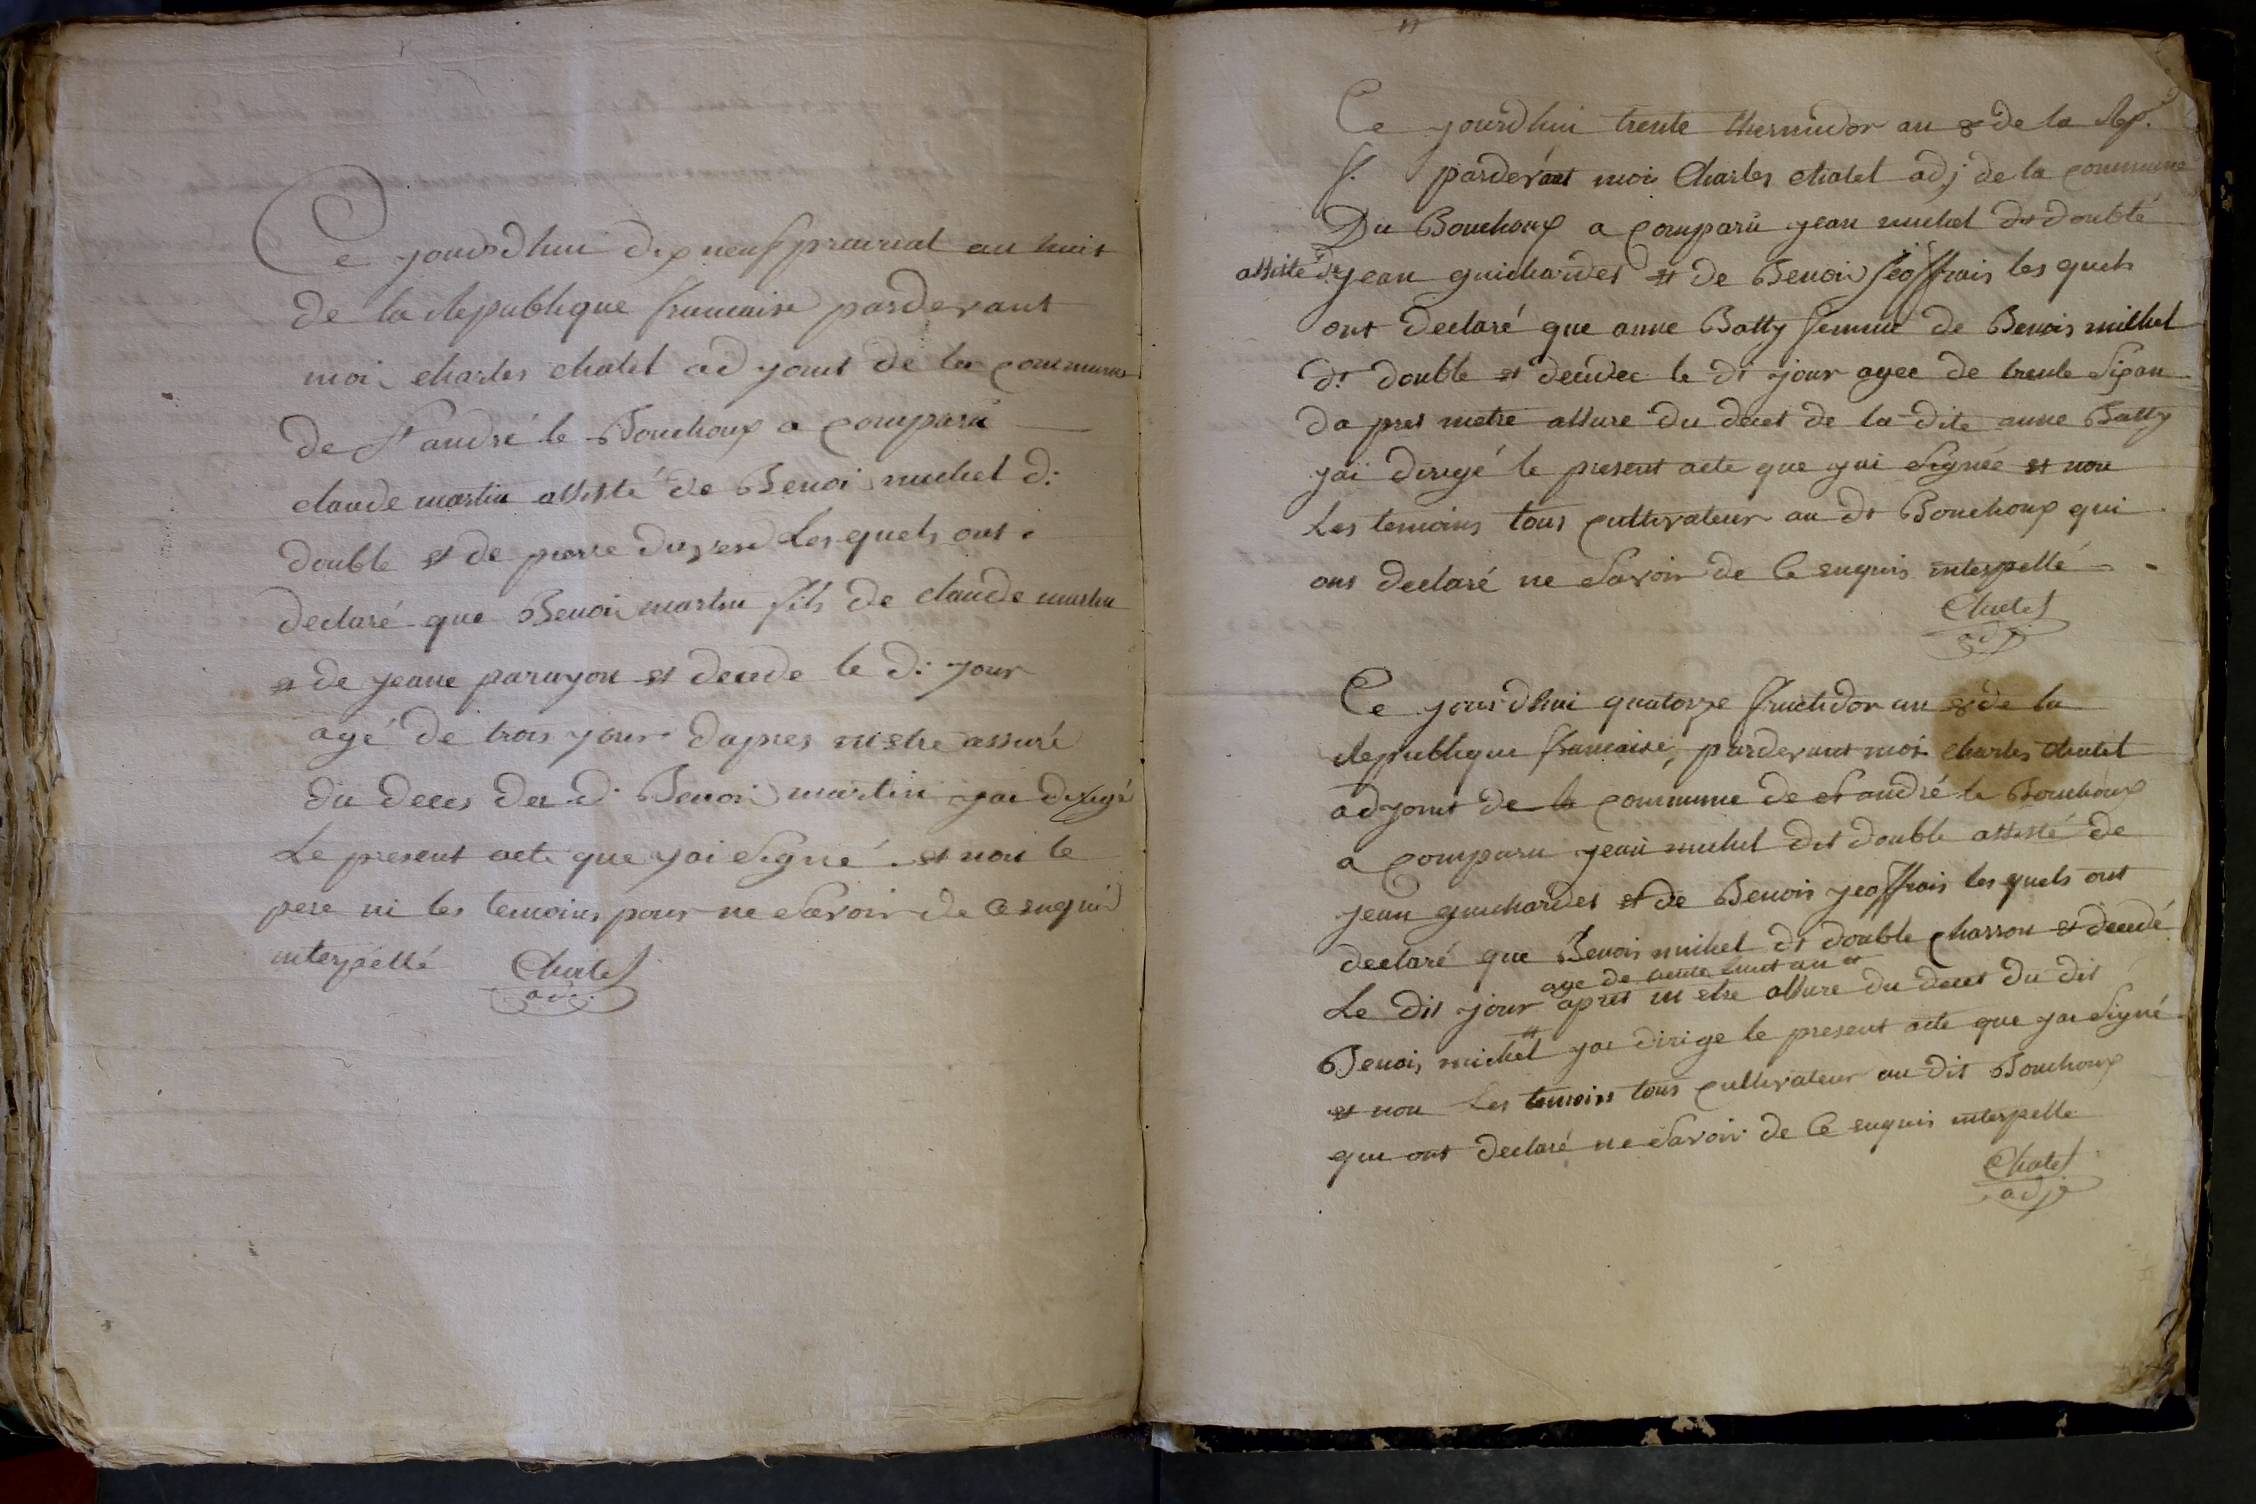 Ce jourdhui dix neuf prairial an huit
de la Republique francaise pardevant
moi charles chatel adjoint de la commune
de St andré le Bouchoux a comparu
claude martin assisté de Benoi michel d:
double et de pierre lesquels ont
declaré que Benoi martin fils de claude martin
et de jeane parayon et decede le d: jour
agé de trois jour dapres mestre assuré
du deces du d: Benoi martin jai dirigé
Le present acte que jai signé et non le
pere ni les temoins pour ne savoir de ce enquis
interpellé Chatel
adj.
Ce jourdhui trente thermidor an 8 de la Rep.
f. pardevant moi Charles chatel adj de la commune
Du Bouchoux a comparu jean michel dt double
assisté de jean guichardet et de Benoi jeoffrais les quels
ont declaré que anne Batty femme de Benois michel
dt double et decedee le dt jour agee de trente six an
da pres metre assure du decet de la dite anne Batty
jai dirigé le present acte que jai signée et non
Les temoins tous cultivateur au dt Bouchoux qui
ont declaré ne savoir de ce enquis interpellé
Chatel
adj
Ce jourdhui quatorze fructidor an 8 de la
Republique francaise, pardevant moi charles chatel
adjoint de la commune de st andré le Bouchoux
a comparu jean michel dit double assisté de
jean guichardet et de Benois jeoffrais les quels ont
declaré que Benois michel dt double charron et decedé
age de trente huit an et
Le dit jour apres metre assure du decet du dit
Benois michel jai dirige le present acte que jai signé
et non Les temoins tous cultivateur au dit Bouchoux
qui ont declaré ne savoir de ce enquis interpelle
Chatel
adj